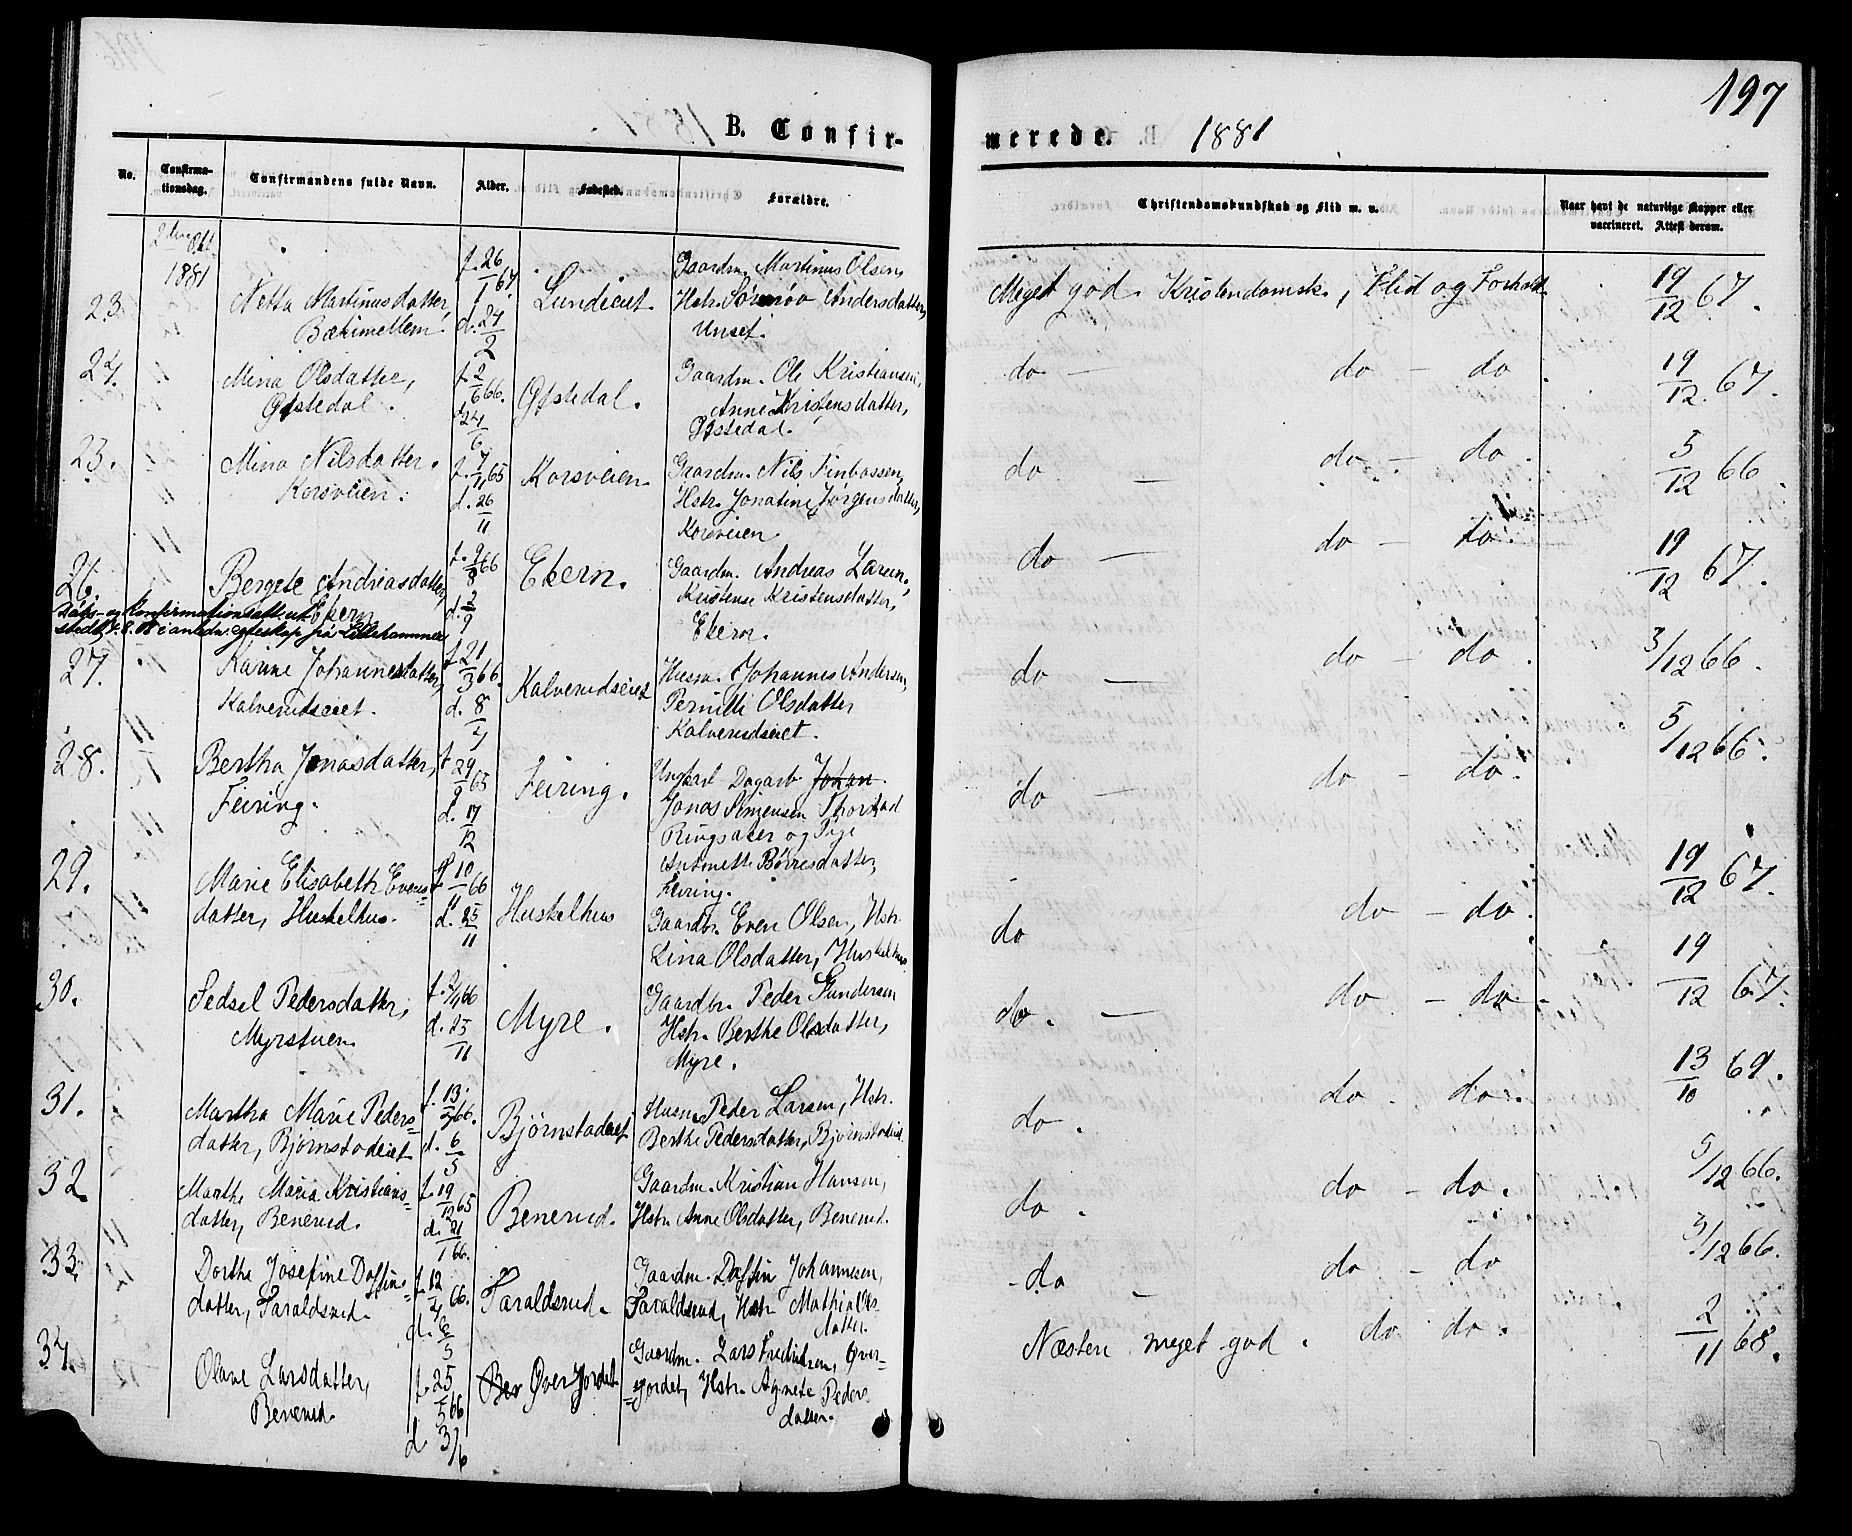 197
B. Confir-
merede. 1881
No.
Confirma-
tionsdag.
Confirmandens fulde Navn.
Alder.
Fødested.
Forældre.
Christendomskundskab og Flid m. v.
Naar havt de naturlige Kopper eller
vaccineret. Attest derom.
2den Okt.
1881
23.
Netta Martinusdatter,
Bækimellem.
f. 26/1 67.
d. 24/2
Lundeiet.
Gaardm. Martinus Olsen,
Hstr. Andersdatter,
Unset.
Meget god. Kristendomsk., Flid og Forhold
19/12 67.
24.
Mina Olsdatter,
Gjstedal.
f. 2/6 66.
d. 24/6
Gjstedal.
Gaardm. Ole Kristiansen,
Anne Kristensdatter,
Gjstedal.
do — do — do.
19/12 67.
23.
Mina Nilsdatter.
Korsveien.
f. 7/11 65
d. 26/11
Korsveien.
Gaardm. Nils
Hstr. Jonatine Jørgensdatter,
Korsveien
do — do — do.
5/12 66.
26.
Bergete Andreasdatter,
Ekern
Dåbs- og konfirmationsatt. utstedt 7.8.08 i anledn. egteskap frå Lillehammer
f. 9/8 66
d. 2/9
Ekern.
Gaardm. Andreas Larsen,
Kristense Kristensdatter,
Ekern.
do — do — do.
19/12 67.
27.
Karine Johannesdatter,
Kalverudseiet.
f. 21/3 66.
d. 8/4
Kalverudseiet
Husm. Johannes Andersen,
Pernille Olsdatter
Kalverudseiet.
do — do — do.
3/12 66.
28.
Bertha Jonasdatter,
Feiring.
f. 29/9 65
d. 17/12
Feiring.
Ungkarl Dagarb. Johan
Jonas Simensen Thorstad
Ringsaker og Pige
Antonette Børresdatter,
Feiring.
do — do — do.
5/12 66.
29.
Marie Elisabeth Evens-
datter, Huskelhus.
f. 10/11 66
d. 25/11
Huskelhus
Gaardbr. Even Olsen, Hstr.
Lina Olsdatter, Huskelhus.
do do — do.
19/12 67.
30.
Sedsel Pedersdatter,
Myrstuen.
d. 25/11
Myre.
Gaardbr. Peder Gundersen
Hstr. Berthe Olsdatter,
Myre.
do. — do — do
19/12 67.
31.
Martha Marie Peders-
datter, Bjørnstadeiet
f. 13/3 66.
d. 6/5
Bjørnstadeiet
Husm. Peder Larsen, Hstr.
Berthe Pedersdatter, Bjørnstadeiet.
do. do. do.
13/10 69.
32.
Marthe Maria Kristians-
datter, Benerud.
f. 19/12 65
d. 21/1 66.
Benerud.
Gaardm. Kristian Hansen,
Hstr. Anne Olsdatter, Benerud.
do. do — do.
5/12 66.
33.
Dorthe Josefine Daffins-
datter, Faraldsrud.
f. 12/4 66.
d. 6/5
Faraldsrud.
Gaardm. Daffin Johannesen,
Faraldsrud, Hstr. Mathia Ols-
datter.
do — do — do
3/12 66.
34.
Olave Larsdatter,
Benerud.
f. 25/5 66
d. 3/6
Ben Øver Jordet
Gaardm. Lars Fredriksen, Øver-
jordet, Hstr. Agnete Peders-
datter.
Næsten meget god. do do.
2/11 68.